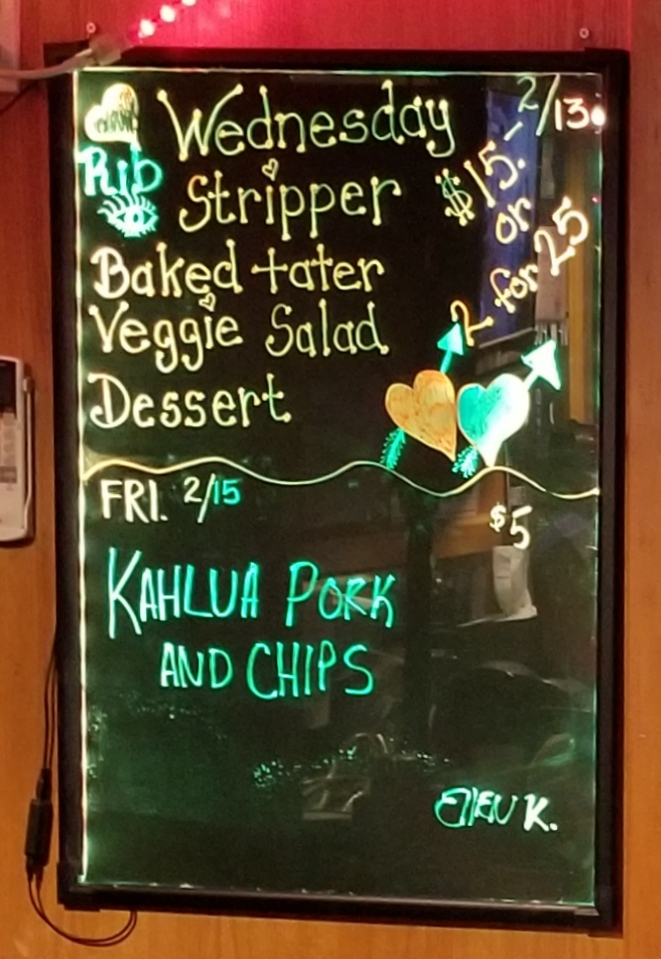 Wednesday 2/13
Rib
Stripper
$15.-
or
2 for 25
Baked tater
Veggie Salad
Dessert
FRI. 2/15
$5
KAHLUA PORK
AND CHIPS
Ellen K.